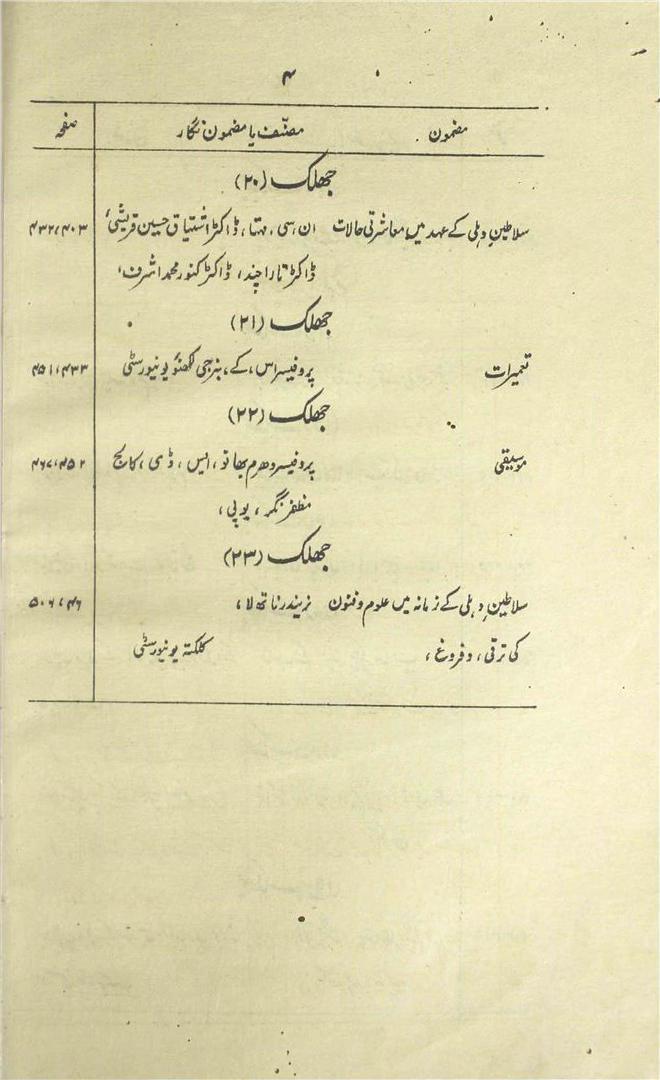 ۴
مضمون مصنّف یا مضمون نگار صفحہ
جھلک (۲۰)
سلاطینِ دہلی کے عہد میں معاشرتی حالات ان، سی، مہتا، ڈاکٹر اشتیاق حسین قریشی، ۴۳۲،۴۰۳
ڈاکٹر تارا چند، ڈاکٹر کنور محمد اشرف،
جھلک (۲۱)
تعمیرات پروفیسر اس، کے، بنرجی لکھنؤ یونیورسٹی ۴۵۱،۴۳۳
جھلک (۲۲)
موسیقی پروفیسر دھرم بھانو، ایس، ڈی، کالج ۴۶۷،۴۵۲
مظفر نگر، یو پی،
جھلک (۲۳)
سلاطینِ دہلی کے زمانہ میں علوم و فنون نریندر ناتھ لا، ۵۰۶،۴۶
کی ترقی، و فروغ، کلکتہ یونیورسٹی